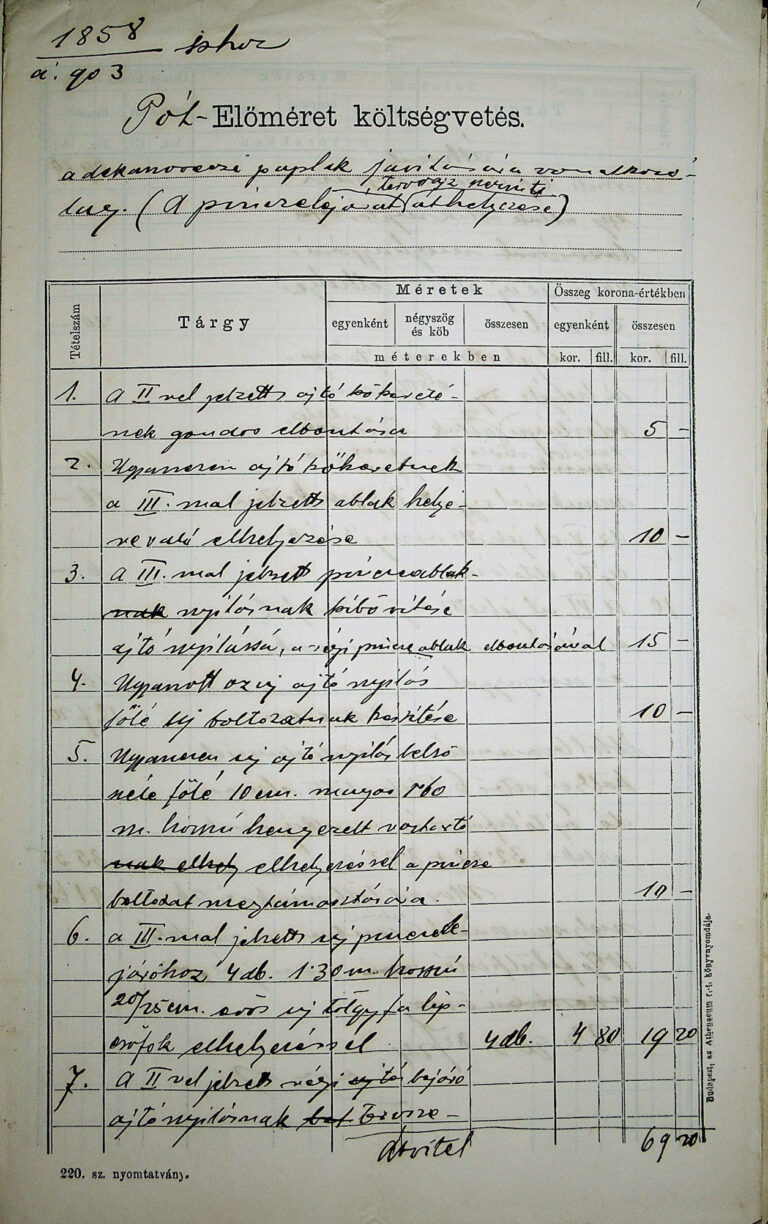 1858
á. 903
Pót-Előméret költségvetés.
a dekanovecsi paplak javitására vonatkozó-
tervrajz szerinti
lag. (A pinczelejárat áthelyezése)
Tételszám
Tárgy
Méretek
Összeg korona-értékben
egyenként
négyszög és köb
összesen
egyenként
összesen
méterekben
kor. fill. kor. fill.
1. A II vel jelzett ajtó kőkereté-
nek gondos elbontása 5 –
2. Ugyanezen ajtó kőkeretnek
a III. mal jelzett ablak helyé-
re való elhelyezése 10 –
3. A III. mal jelzett pinczeablak-
nak nyilásnak kibővitése
ajtó nyilássá, a régi pincze ablak elbontásával 15 –
4. Ugyanott az uj ajtó nyilás
fölé uj boltozatnak készitése 10 –
5. Ugyanezen uj ajtó nyilás belső
fölé 10 cm. magas 1·60
m. hosszú hengerelt vastartó
nak elhely elhelyezéssel a pincze
boltozat megtámasztására. 10 –
6. a III. mal jelzett uj pinczele-
járóhoz 4 db. 1·30 m. hosszú
20/15 cm. erős uj tölgyfa lép-
csőfok elhelyezéssel 4 db. 4 80 19 20
7. A II vel jelzett régi ajtó bejáró
ajtó nyilásnak
átvitel 69 20
220. sz. nyomtatvány.
Budapest, az Athenaeum r.-t. könyvnyomdája.